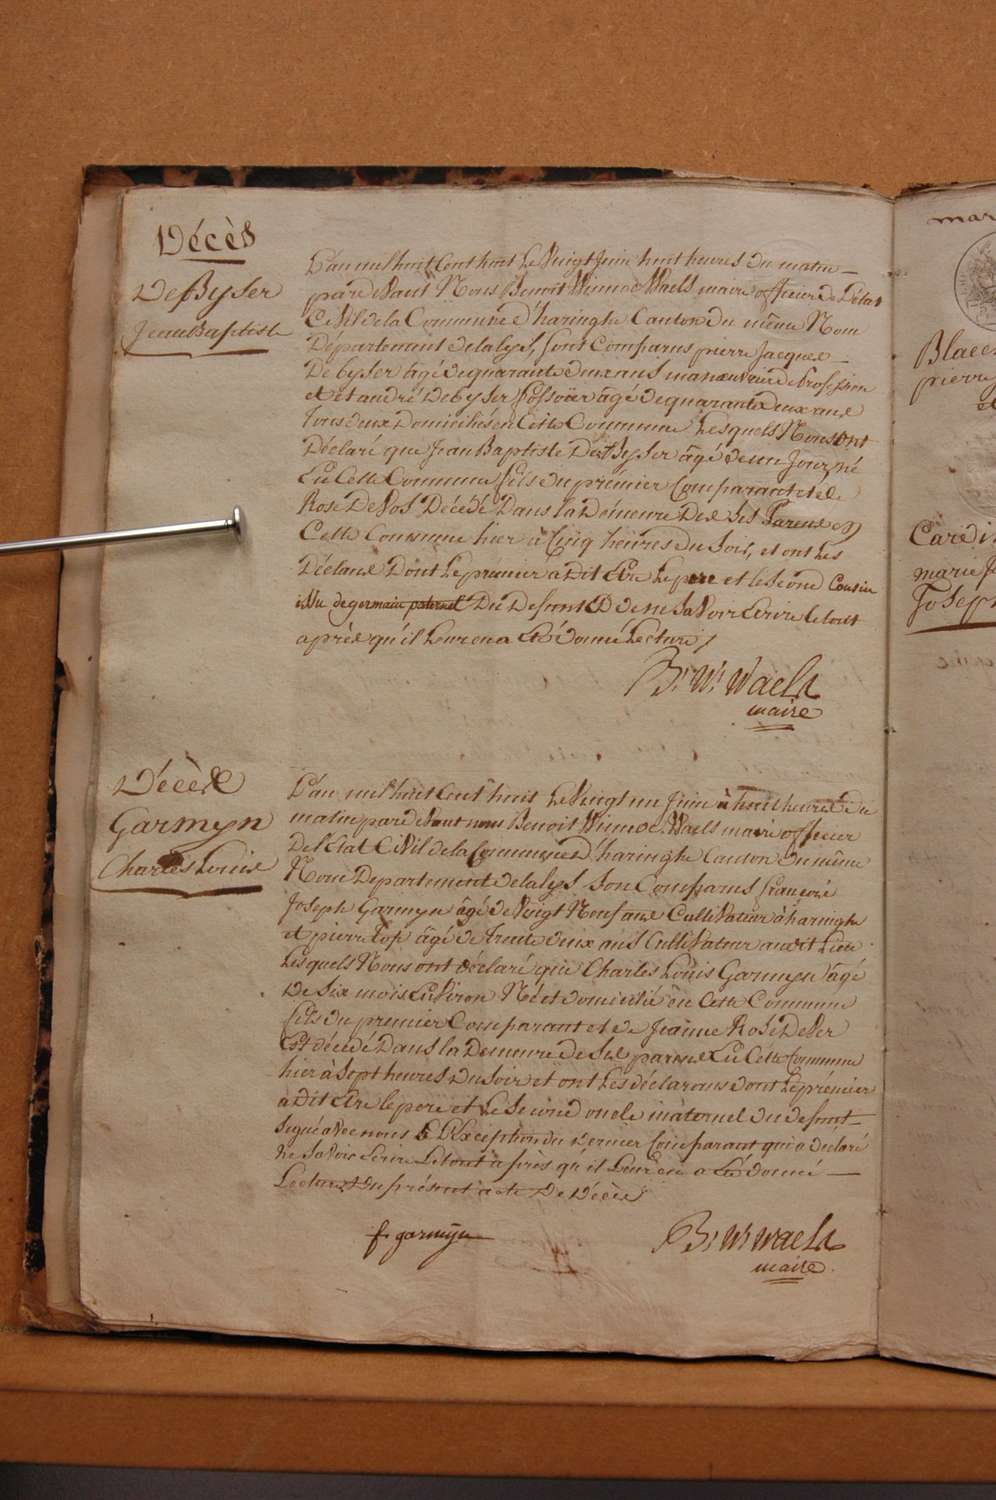 Décès
DeByser
JeanBaptiste
L'an mil huit Cent huit le Vingt Juin huit heures du matin
pardevant Nous Benoit Winnoc Waels maire officier de L'état
Civil de la Commune d'haringhe Canton du même Nom
Département de la lys, sont Comparus pierre Jacques
Debyser âgé de quarante deux ans manoeuvrier de Profession
et andré Debyser âgé de quarante deux ans
tous deux Domiciliés en Cette Commune Lesquels Nous ont
Déclaré que Jean Baptiste DeByser âgé de un Jour, né
En Cette Commune fils du premier Comparant et de
Rose De Vos Décédé Dans la Demeure De Ses Parens en
Cette Commune hier à Cinq heures du Soir, et ont Les
Déclarans Dont Le premier a Dit être Le pere et le Second Cousin
issu de germain paternel Du Defunt De ne Savoir Ecrire le tout
après qu'il Leur en a Eté Donné Lecture /
B. W. Waels
maire
Décès
Garmyn
Charles Louis
L'an mil huit Cent huit Le Vingt un Juin à huit heures du
matin pardevant nous Benoit Winnoc Waels maire officier
De l'Etat Civil de la Commune d'haringhe Canton du même
Nom Departement de la lys Son Comparus françois
Joseph Garmyn âgé de Vingt Neuf ans Cultivateur à haringhe
et pierre Top âgé de trente deux ans Cultivateur audit Lieu
Lesquels Nous ont déclaré que Charles Louis Garmyn âgé
De Six mois Environ Né et domicilié en Cette Commune
fils du premier Comparant et de Jeanne Rose
Est décédé Dans la Demeure de Ses parens En Cette Commune
hier à Sept heures du Soir et ont Les déclarans dont Le premier
a Dit être le pere et Le Second oncle maternel du defunt
Signé avec nous à L'Exception du dernier Comparant qui a déclaré
Ne Savoir Ecrire Le tout après qu'il Leur en a Eté donné
Lecture du présent acte De Décès
f. garmyn
B. W. Waels
maire
mar
Blaee
pierre
et
Caredi
marie J
Joseph